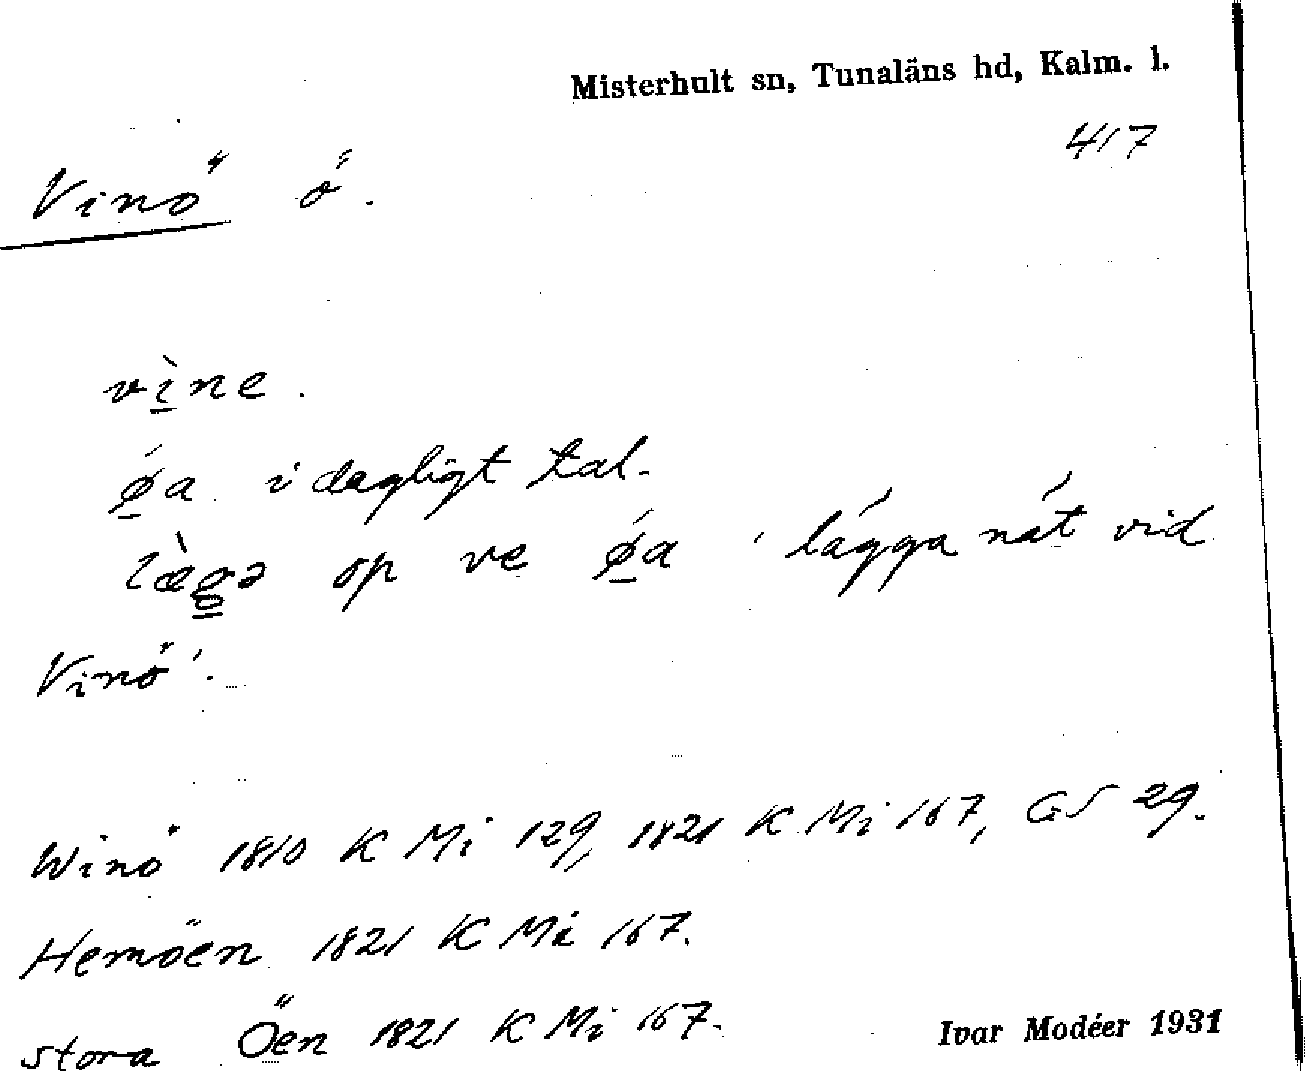 Misterhult sn, Tunaläns hd, Kalm. l.
417
Vinö ö.
vìne.
ǿa i dagligt tal.
lægə op ve ǿa 'lägga nät vid
Vinö'.
Winö 1810 K Mi 129, 1821 K Mi 167, GS 29.
Hemöen 1821 K Mi 167.
stora Öen 1821 K Mi 167.
Ivar Modéer 1931